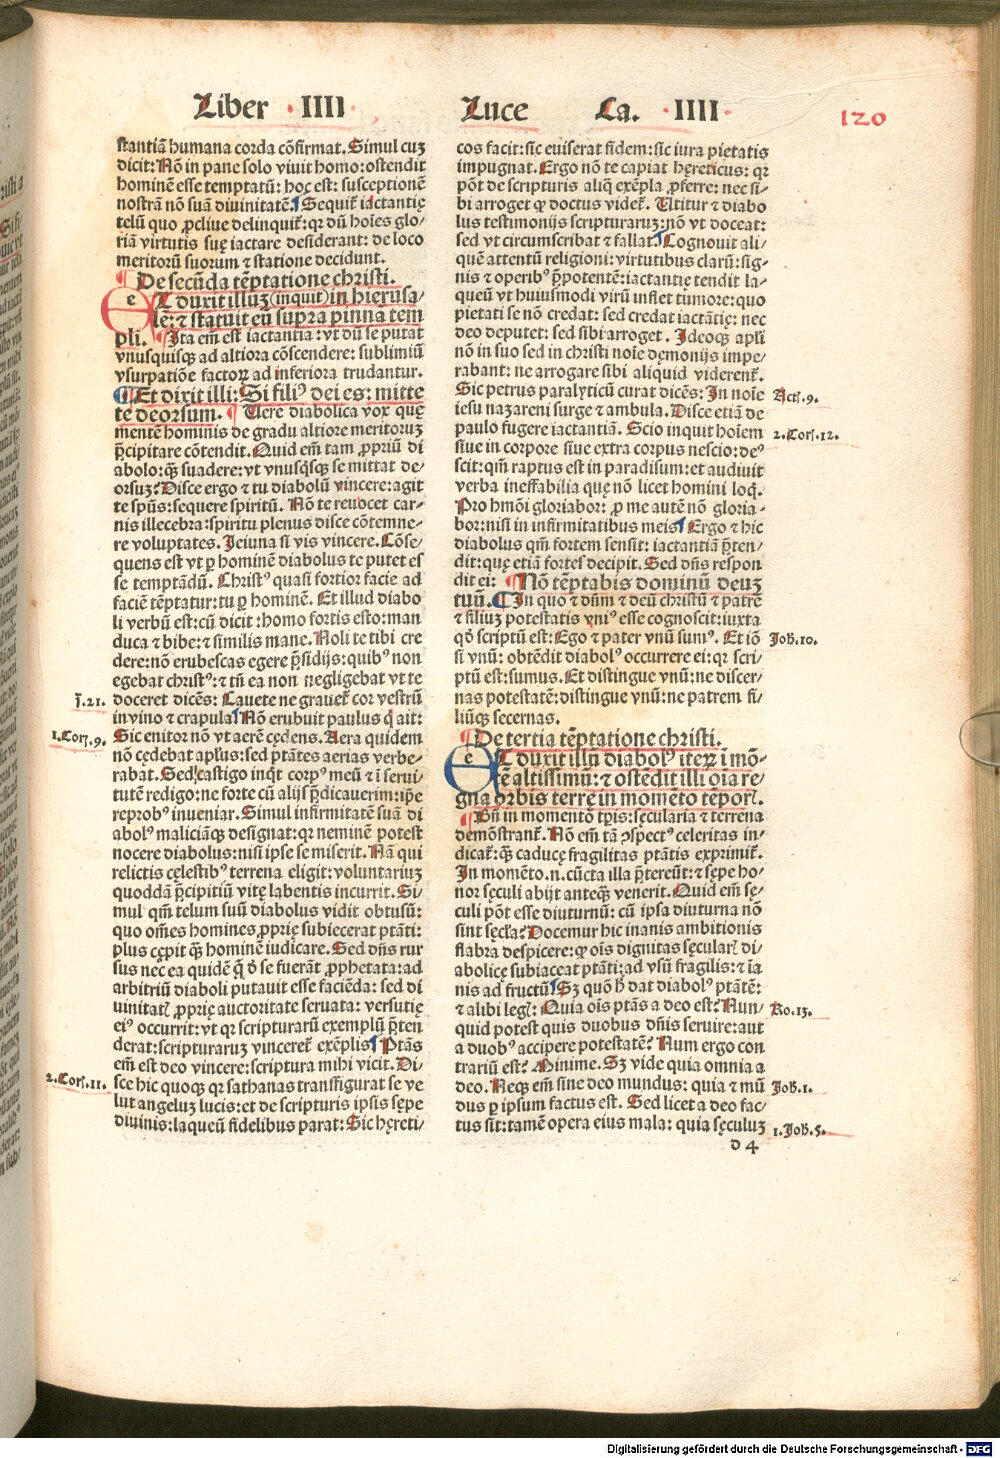 Liber · IIII ·
Luce Ca. · IIII ·
120
stantiã humana corda cõfirmat. Simul cuʒ
dicit: Nõ in pane solo viuit homo: ostendit
hominẽ esse temptatũ: hoc est: susceptionẽ
nostrã nõ suã diuinitatẽ. Sequit᷑ iactantię
telũ quo ꝓcliue delinquit᷑: qꝛ dũ hoĩes glo/
riã virtutis suę iactare desiderant: de loco
meritorũ suorum ⁊ statione decidunt.
De secũda tẽptatione christi.
e T duxit illuʒ (inquit) in hierusa/
lẽ: ⁊ statuit eũ supra pinnã tem
pli. Ita em̃ est iactantia: vt dũ se putat
vnusquisqꝫ ad altiora cõscendere: sublimiũ
vsurpatiõe factoꝝ ad inferiora trudantur.
Et dixit illi: Si filiꝰ dei es: mitte
te deorsum. Uere diabolica vox quę
mentẽ hominis de gradu altiore meritoruʒ
p̃cipitare cõtendit. Quid em̃ tam ꝓpriũ di
abolo: qꝫ̃ suadere: vt vnusq̃sqꝫ se mittat de/
orsuʒ? Disce ergo ⁊ tu diabolũ vincere: agit
te sp̃us: sequere spiritũ. Nõ te reuocet car/
nis illecebra: spiritu plenus disce cõtemne/
re voluptates. Jeiuna si vis vincere. Cõse/
quens est vt ꝑ hominẽ diabolus te putet es
se temptãdũ. Christꝰ quasi fortior facie ad
faciẽ tẽptatur: tu ꝑ hominẽ. Et illud diabo
li verbũ est: cũ dicit: homo fortis esto: man
duca ⁊ bibe: ⁊ similis mane. Noli te tibi cre
dere: nõ erubescas egere p̃sidijs: quibꝰ non
egebat christꝰ: ⁊ tñ ea non negligebat vt te
ĩ. 21. doceret dicẽs: Cauete ne grauet᷑ cor vestrũ
in vino ⁊ crapula. Nõ erubuit paulus q̃ ait:
1. Coꝝ. 9. Sic enitor nõ vt aerẽ cędens. Aera quidem
nõ cędebat apl'us: sed ptãtes aerias verbe/
rabat. Sed castigo inqt̃ corpꝰ meũ ⁊ ĩ serui/
tutẽ redigo: ne forte cũ alijs p̃dicauerim: ip̃e
reprobꝰ inueniar. Simul infirmitatẽ suã di
abolꝰ maliciãqꝫ designat: qꝛ neminẽ potest
nocere diabolus: nisi ipse se miserit. Nã qui
relictis cęlestibꝰ terrena eligit: voluntariuʒ
quoddã p̃cipitiũ vitę labentis incurrit. Si/
mul qm̃ telum suũ diabolus vidit obtusũ:
quo om̃es homines ꝓprię subiecerat ptãti:
plus cępit qꝫ̃ hominẽ iudicare. Sed dñs rur
sus nec ea quidẽ q̃ ð se fuerãt ꝓphetata: ad
arbitriũ diaboli putauit esse faciẽda: sed di
uinitatꝭ ꝓprię auctoritate seruata: versutię
eiꝰ occurrit: vt qꝛ scripturarũ exemplũ p̃ten
derat: scripturaruʒ vinceret᷑ exẽplis. Ptãs
em̃ est deo vincere: scriptura mihi vicit. Di/
2. Coꝝ. 11. sce hic quoqꝫ qꝛ sathanas transfigurat se ve
lut angeluʒ lucis: et de scripturis ipsis sępe
diuinis: laqueũ fidelibus parat: Sic hęreti/
cos facit: sic euiserat fidem: sic iura pietatis
impugnat. Ergo nõ te capiat hęreticus: qꝛ
põt de scripturis aliq̃ exẽpla ꝓferre: nec si/
bi arroget ꝙ doctus videt᷑. Utitur ⁊ diabo
lus testimonijs scripturaruʒ: nõ vt doceat:
sed vt circumscribat ⁊ fallat. Cognouit ali/
quẽ attentũ religioni: virtutibus clarũ: sig/
nis ⁊ operibꝰ p̃potentẽ: iactantię tendit la/
queũ vt huiusmodi virũ inflet tumore: quo
pietati se nõ credat: sed credat iactãtię: nec
deo deputet: sed sibi arroget. Ideoqꝫ apl'i
nõ in suo sed in christi noĩe dęmonijs impe/
rabant: ne arrogare sibi aliquid viderent᷑.
Sic petrus paralyticũ curat dicẽs: In noĩe Act. 9.
iesu nazareni surge ⁊ ambula. Disce etiã de
paulo fugere iactantiã. Scio inquit hoĩem 2. Coꝝ. 12.
siue in corpore siue extra corpus nescio: deꝰ
scit: qm̃ raptus est in paradisum: et audiuit
verba ineffabilia quę nõ licet homini loq̃.
Pro hm̃õi gloriabor: ꝓ me autẽ nõ gloria/
bor: nisi in infirmitatibus meis. Ergo ⁊ hic
diabolus qm̃ fortem sensit: iactantiã p̃ten/
dit: quę etiã fortes decipit. Sed dñs respon
dit ei: Nõ tẽptabis dominũ deuʒ
tuũ. In quo ⁊ dñm ⁊ deũ christũ ⁊ patrẽ
⁊ filiuʒ potestatis vniꝰ esse cognoscit: iuxta
qð scriptũ est: Ego ⁊ pater vnũ sumꝰ. Et iõ Joh. 10.
si vnũ: obtẽdit diabolꝰ occurrere ei: qꝛ scri/
ptũ est: sumus. Et distingue vnũ: ne discer/
nas potestatẽ: distingue vnũ: ne patrem fi/
liũqꝫ secernas.
De tertia tẽptatione christi.
e T duxit illũ diabolꝰ iteꝝ ĩ mõ-
tẽ altissimũ: ⁊ ostẽdit illi oĩa re/
gna orbis terrę in momẽto tẽporꝭ.
Bñ in momentõ tp̃is: sęcularia ⁊ terrena
demõstrant᷑. Nõ em̃ tã ꝯspectꝰ celeritas in/
dicat᷑: qꝫ̃ caducę fragilitas ptãtis exprimit᷑.
In momẽto .n. cũcta illa p̃tereũt: ⁊ sępe ho/
nor sęculi abijt anteqꝫ̃ venerit. Quid em̃ sę/
culi põt esse diuturnũ: cũ ipsa diuturna nõ
sint sęcl'a? Docemur hic inanis ambitionis
flabra despicere: ꝙ oĩs dignitas sęcularꝭ di/
abolicę subiaceat ptãti: ad vsũ fragilis: ⁊ ĩa
nis ad fructũ. Sʒ quõ h̃ dat diabolꝰ ptãtẽ:
⁊ alibi legꝭ: Quia oĩs ptãs a deo est? Nun/ Ro. 13.
quid potest quis duobus dñis seruire: aut
a duobꝰ accipere potestatẽ? Num ergo con
trariũ est? Minime. Sʒ vide quia omnia a
deo. Neqꝫ em̃ sine deo mundus: quia ⁊ mũ Joh. 1.
dus ꝑ ipsum factus est. Sed licet a deo fac/
tus sit: tamẽ opera eius mala: quia sęculuʒ 1. Joh. 5.
d 4
Digitalisierung gefördert durch die Deutsche Forschungsgemeinschaft - DFG